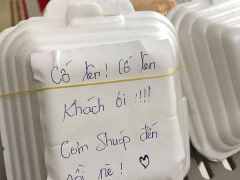 Cố lên! Cố lên
Khách ơi !!!!
Cơm Shuóp đến
rồi nè! ♡